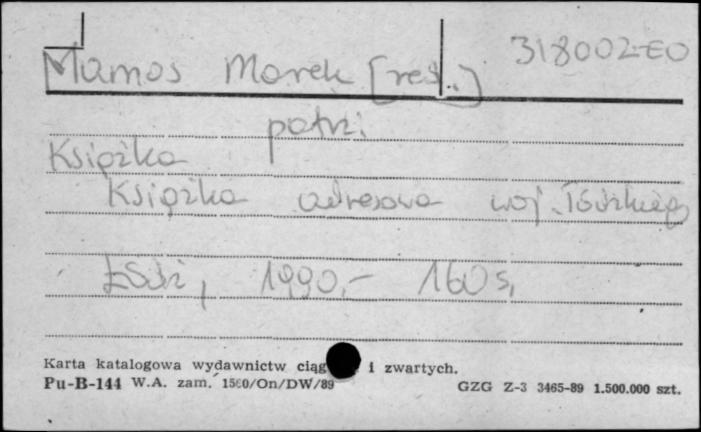 318002-EO
Mamos Marek [red.]
patrz:
Książka
Książka adresowa woj. łódzkiego
Łódź, 1990,- 160 s,
Karta katalogowa wydawnictw ciąg i zwartych.
Pu-B-144 W.A. zam. 1560/On/DW/89 GZG Z-3 3465-89 1.500.000 szt.